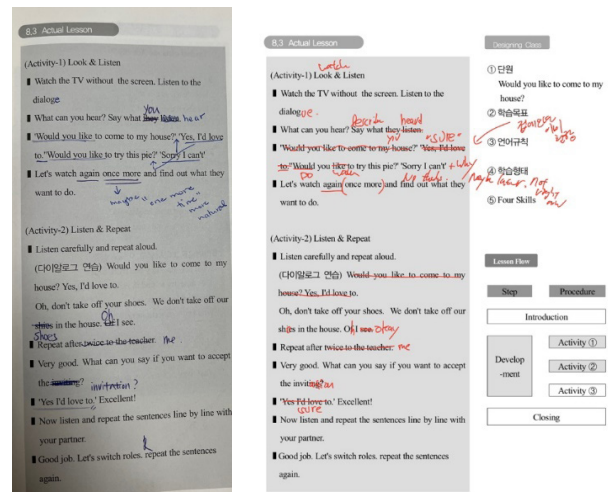 8.3 Actual Lesson
(Activity-1) Look & Listen
Watch the TV without the screen. Listen to the
dialoge
you
What can you hear? Say what they listen hear
'Would you like to come to my house?' 'Yes, I'd love
to.' 'Would you like to try this pie?' 'Sorry I can't'
Let's watch again once more and find out what they
want to do.
maybe "one more time" more natural
(Activity-2) Listen & Repeat
Listen carefully and repeat aloud.
(다이알로그 연습) Would you like to come to my
house? Yes, I'd love to.
Oh, don't take off your shoes. We don't take off our
shies in the house. Of I see.
Oh
shoes
Repeat after twice to the teacher. me
Very good. What can you say if you want to accept
the inviting? invitation?
'Yes I'd love to.' Excellent!
Now listen and repeat the sentences line by line with
your partner.
Good job. Let's switch roles. repeat the sentences
again.
8.3 Actual Lesson
watch
(Activity-1) Look & Listen
Watch the TV without the screen. Listen to the
dialogue.
Describe heard
What can you hear? Say what they listen
you "SURE"
'Would you like to come to my house?' 'Yes, I'd love
to.' 'Would you like to try this pie?' 'Sorry I can't' + why
DO
Let's watch again (once more) and find out what they
want to do.
(Activity-2) Listen & Repeat
Listen carefully and repeat aloud.
(다이알로그 연습) Would you like to come to my
house? Yes, I'd love to.
Oh, don't take off your shoes. We don't take off our
shes in the house. Oh I see. okay
Repeat after twice to the teacher. me
Very good. What can you say if you want to accept
the inviting?
'Yes I'd love to.' Excellent!
sure
Now listen and repeat the sentences line by line with
your partner.
Good job. Let's switch roles. repeat the sentences
again.
Designing Class
① 단원
Would you like to come to my
house?
② 학습목표
③ 언어규칙
④ 학습형태
⑤ Four Skills
Lesson Flow
Step Procedure
Introduction
Develop
-ment
Activity ①
Activity ②
Activity ③
Closing